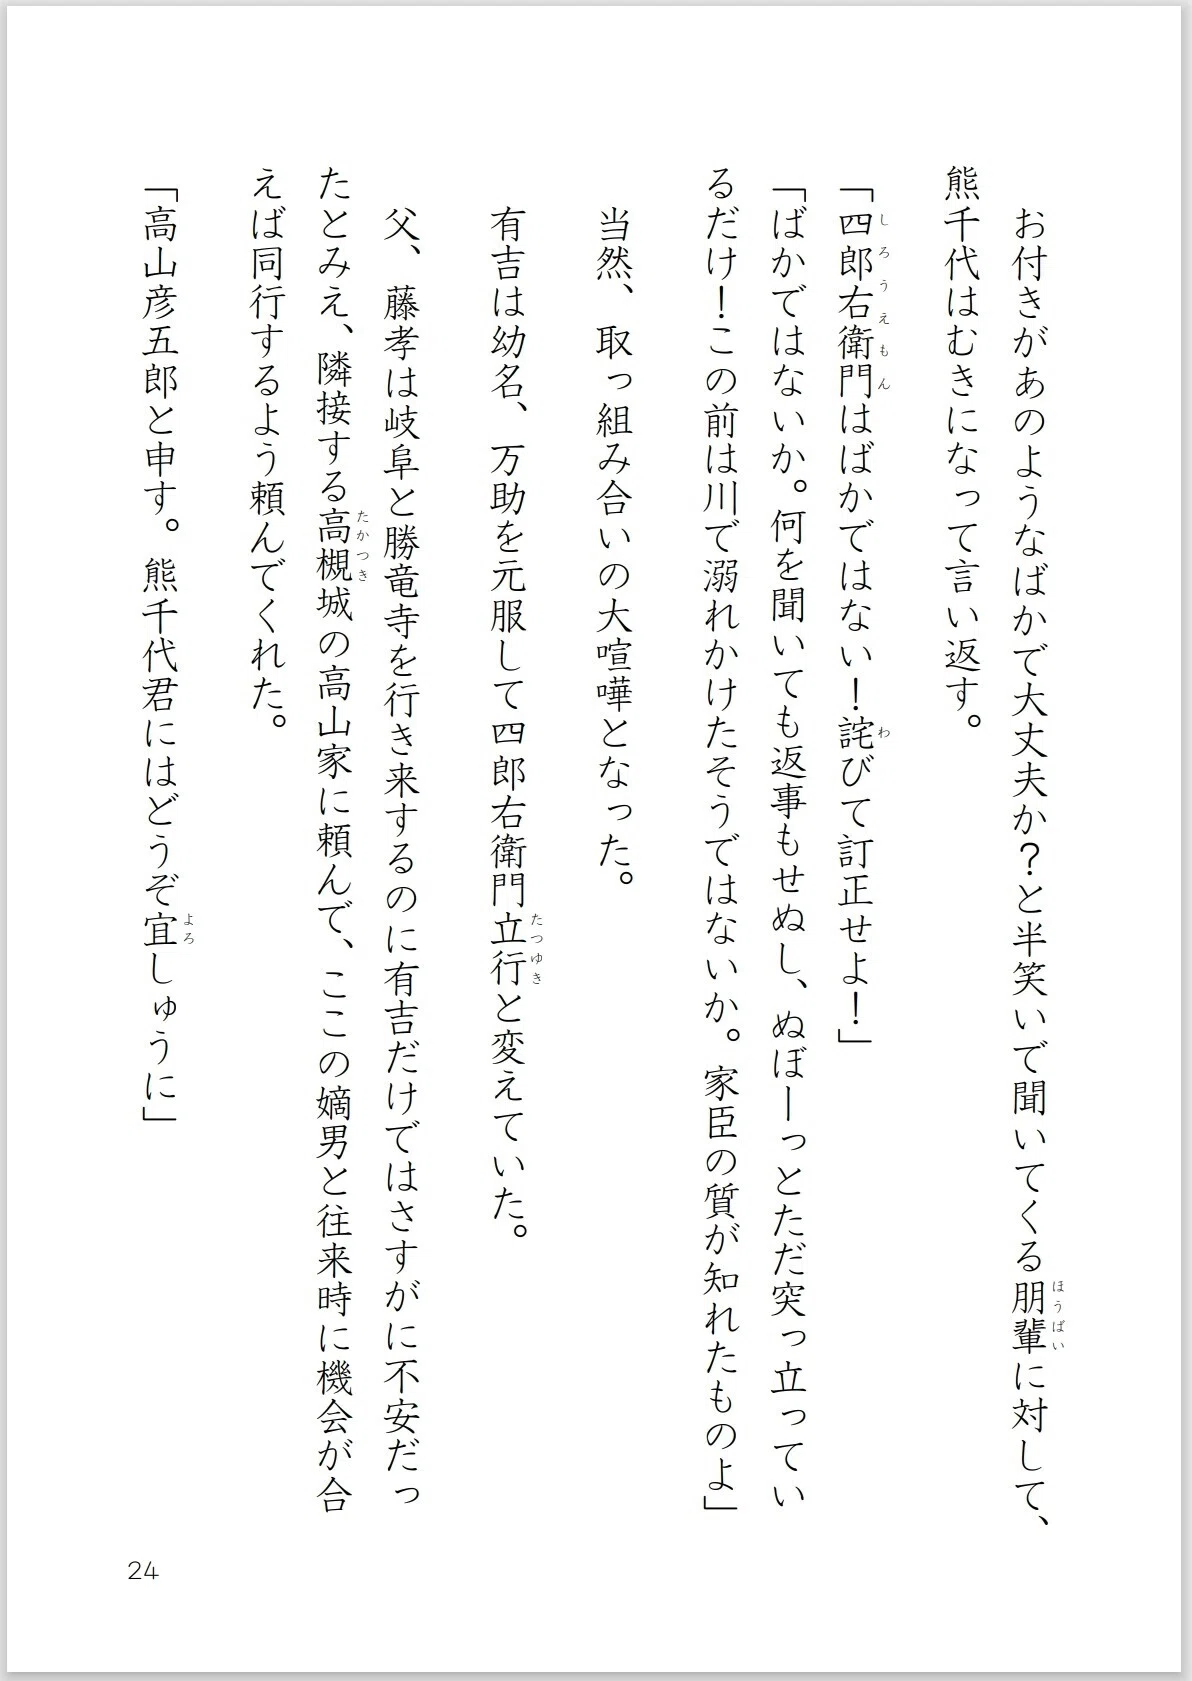 お付きがあのようなばかで大丈夫か？と半笑いで聞いてくる朋輩に対して、
ほうばい
熊千代はむきになって言い返す。
「四郎右衛門はばかではない！詫びて訂正せよ！」
しろうえもん
わ
「ばかではないか。何を聞いても返事もせぬし、ぬぼーっとただ突っ立ってい
るだけ！この前は川で溺れかけたそうではないか。家臣の質が知れたものよ」
当然、取っ組み合いの大喧嘩となった。
有吉は幼名、万助を元服して四郎右衛門立行と変えていた。
たつゆき
父、藤孝は岐阜と勝竜寺を行き来するのに有吉だけではさすがに不安だっ
たとみえ、隣接する高槻城の高山家に頼んで、ここの嫡男と往来時に機会が合
たかつき
えば同行するよう頼んでくれた。
「高山彦五郎と申す。熊千代君にはどうぞ宜しゅうに」
よろ
24